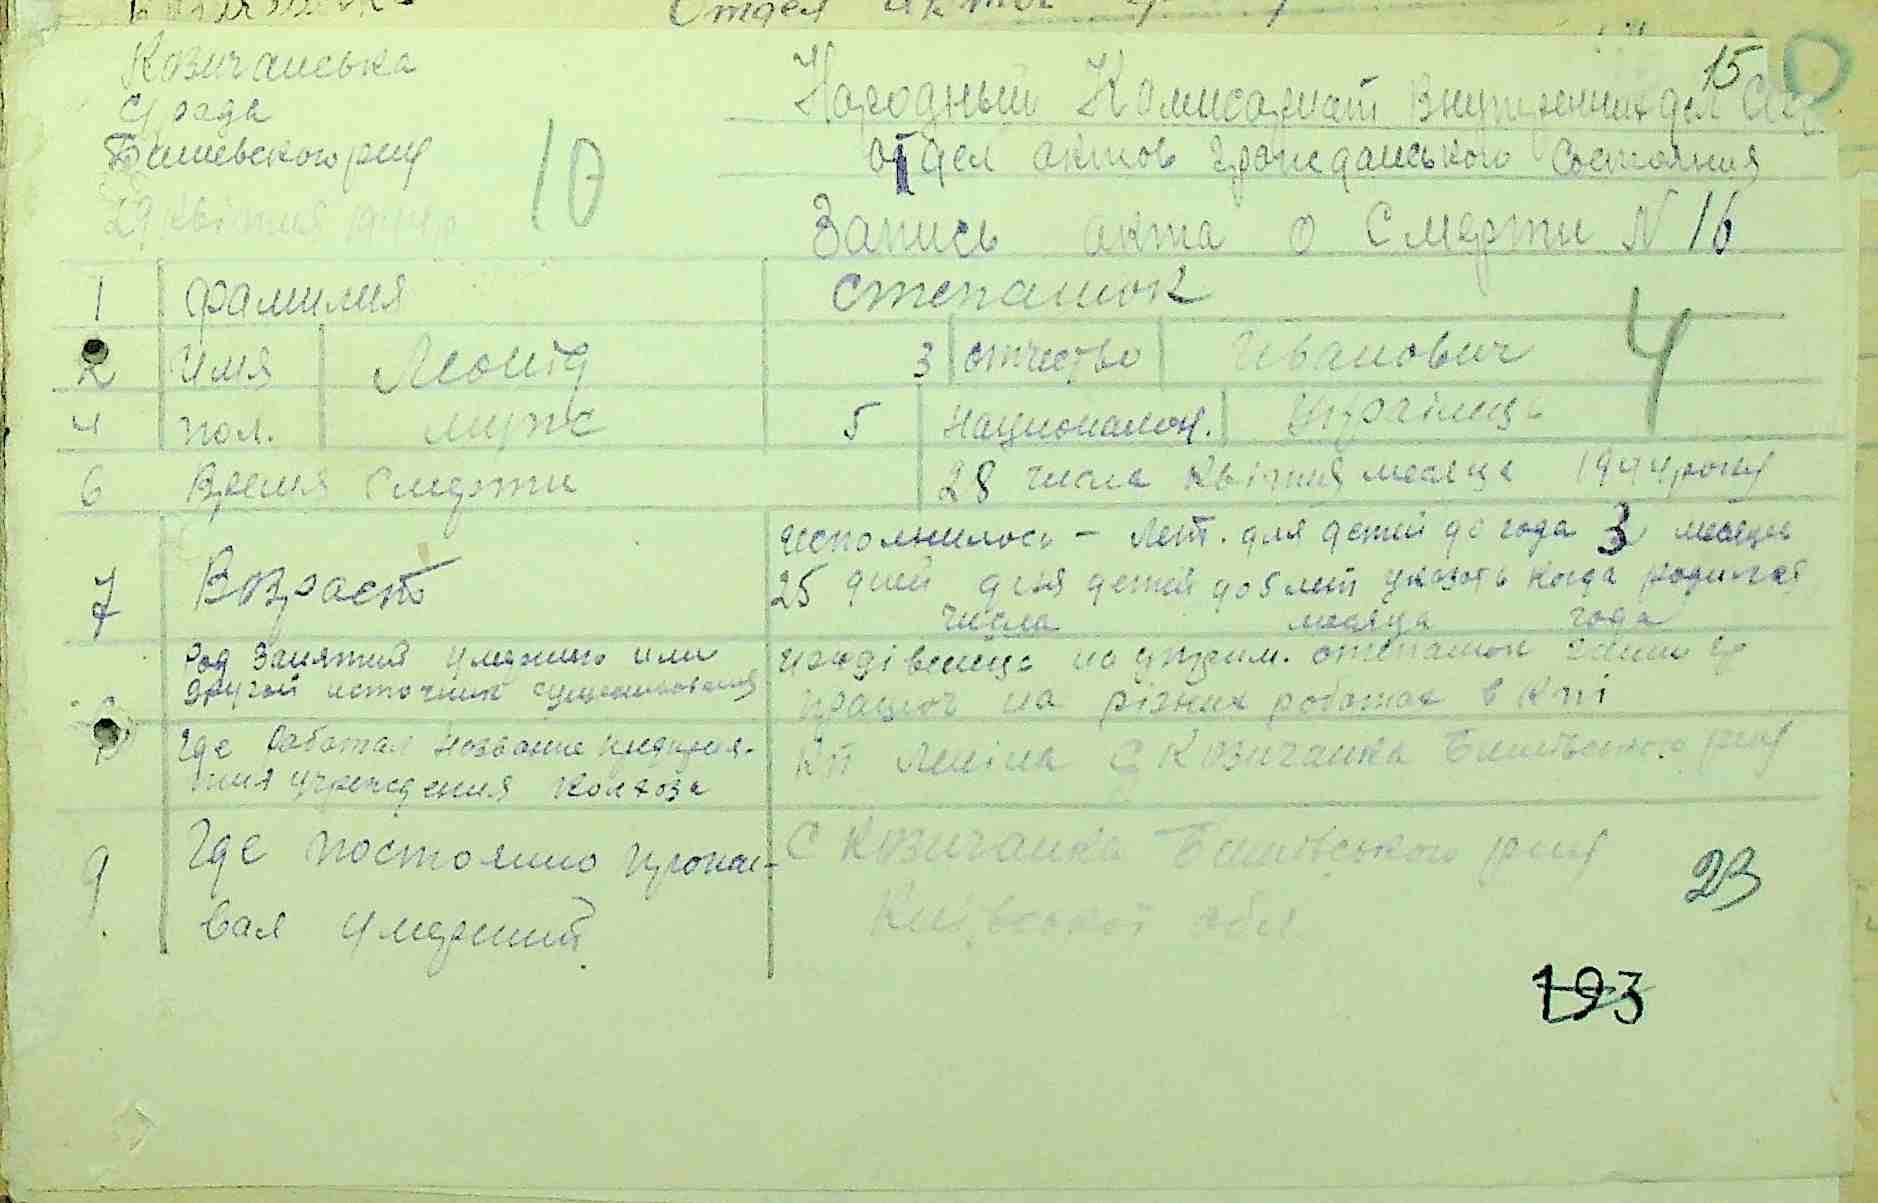 Отдел актов
15
Козичанська
с/рада
Бишевського р-ну
29 квітня 1944 р
10
Народный Комисариат Внутренних дел
Отдел актов гражданського состояния
Запись акта о Смерти N 16
1 фамилия Степанюк
2 имя Леонід 3 отчество Иванович
4
4 пол. муж 5 национальн. Українць
6 Время Смерти 28 числа квітня месяца 1944 року
7 Возраст
исполнилось - лет. для детей до года 3 месяцев
25 дней для детей до 5 лет указать когда родился
числа месяца года
8 Род занятия умершего или
другой источник существования
на Степанюк
працює на різних роботах в к-пі
Где работал название предприя-
тия учреждения колхоза
Кп Леніна С Козичанка Бишівського р-ну
9 Где постоянно прожи-
вал умерший
С Козичанка Бишівського р-ну
Київської обл
23
193